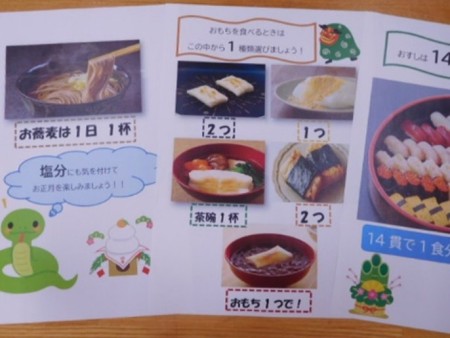 お蕎麦は1日 1杯
塩分にも気を付けて
お正月を楽しみましょう!!
おもちを食べるときは
この中から1種類選びましょう!
2つ
1つ
茶碗1杯
2つ
おもち1つで!
おすしは14
14貫で1食分